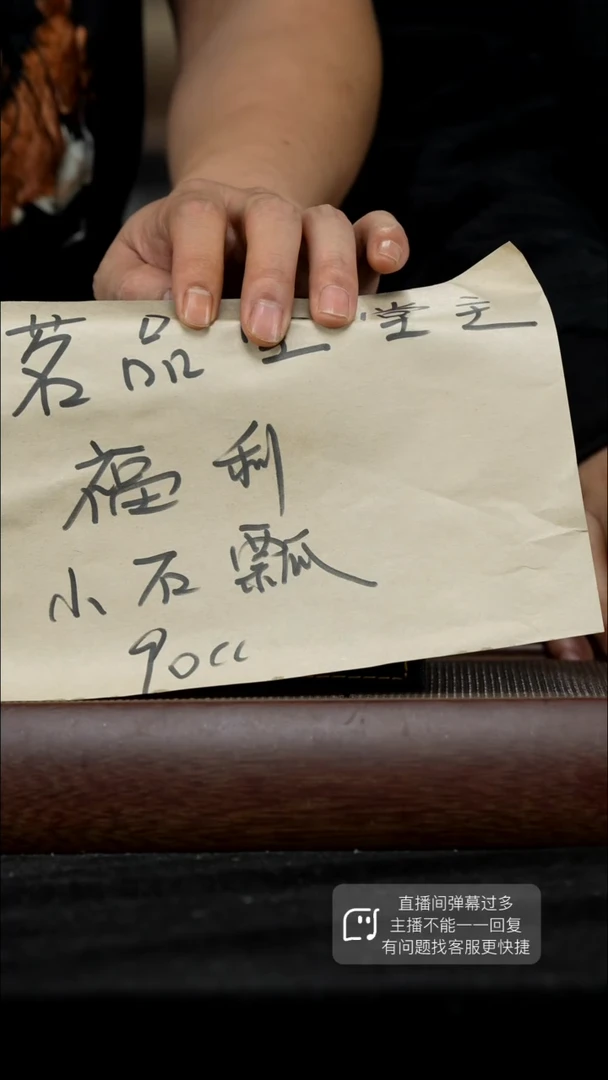 茗品堂主
福利
小石瓢
90cc
直播间弹幕过多
主播不能一一回复
有问题找客服更快捷